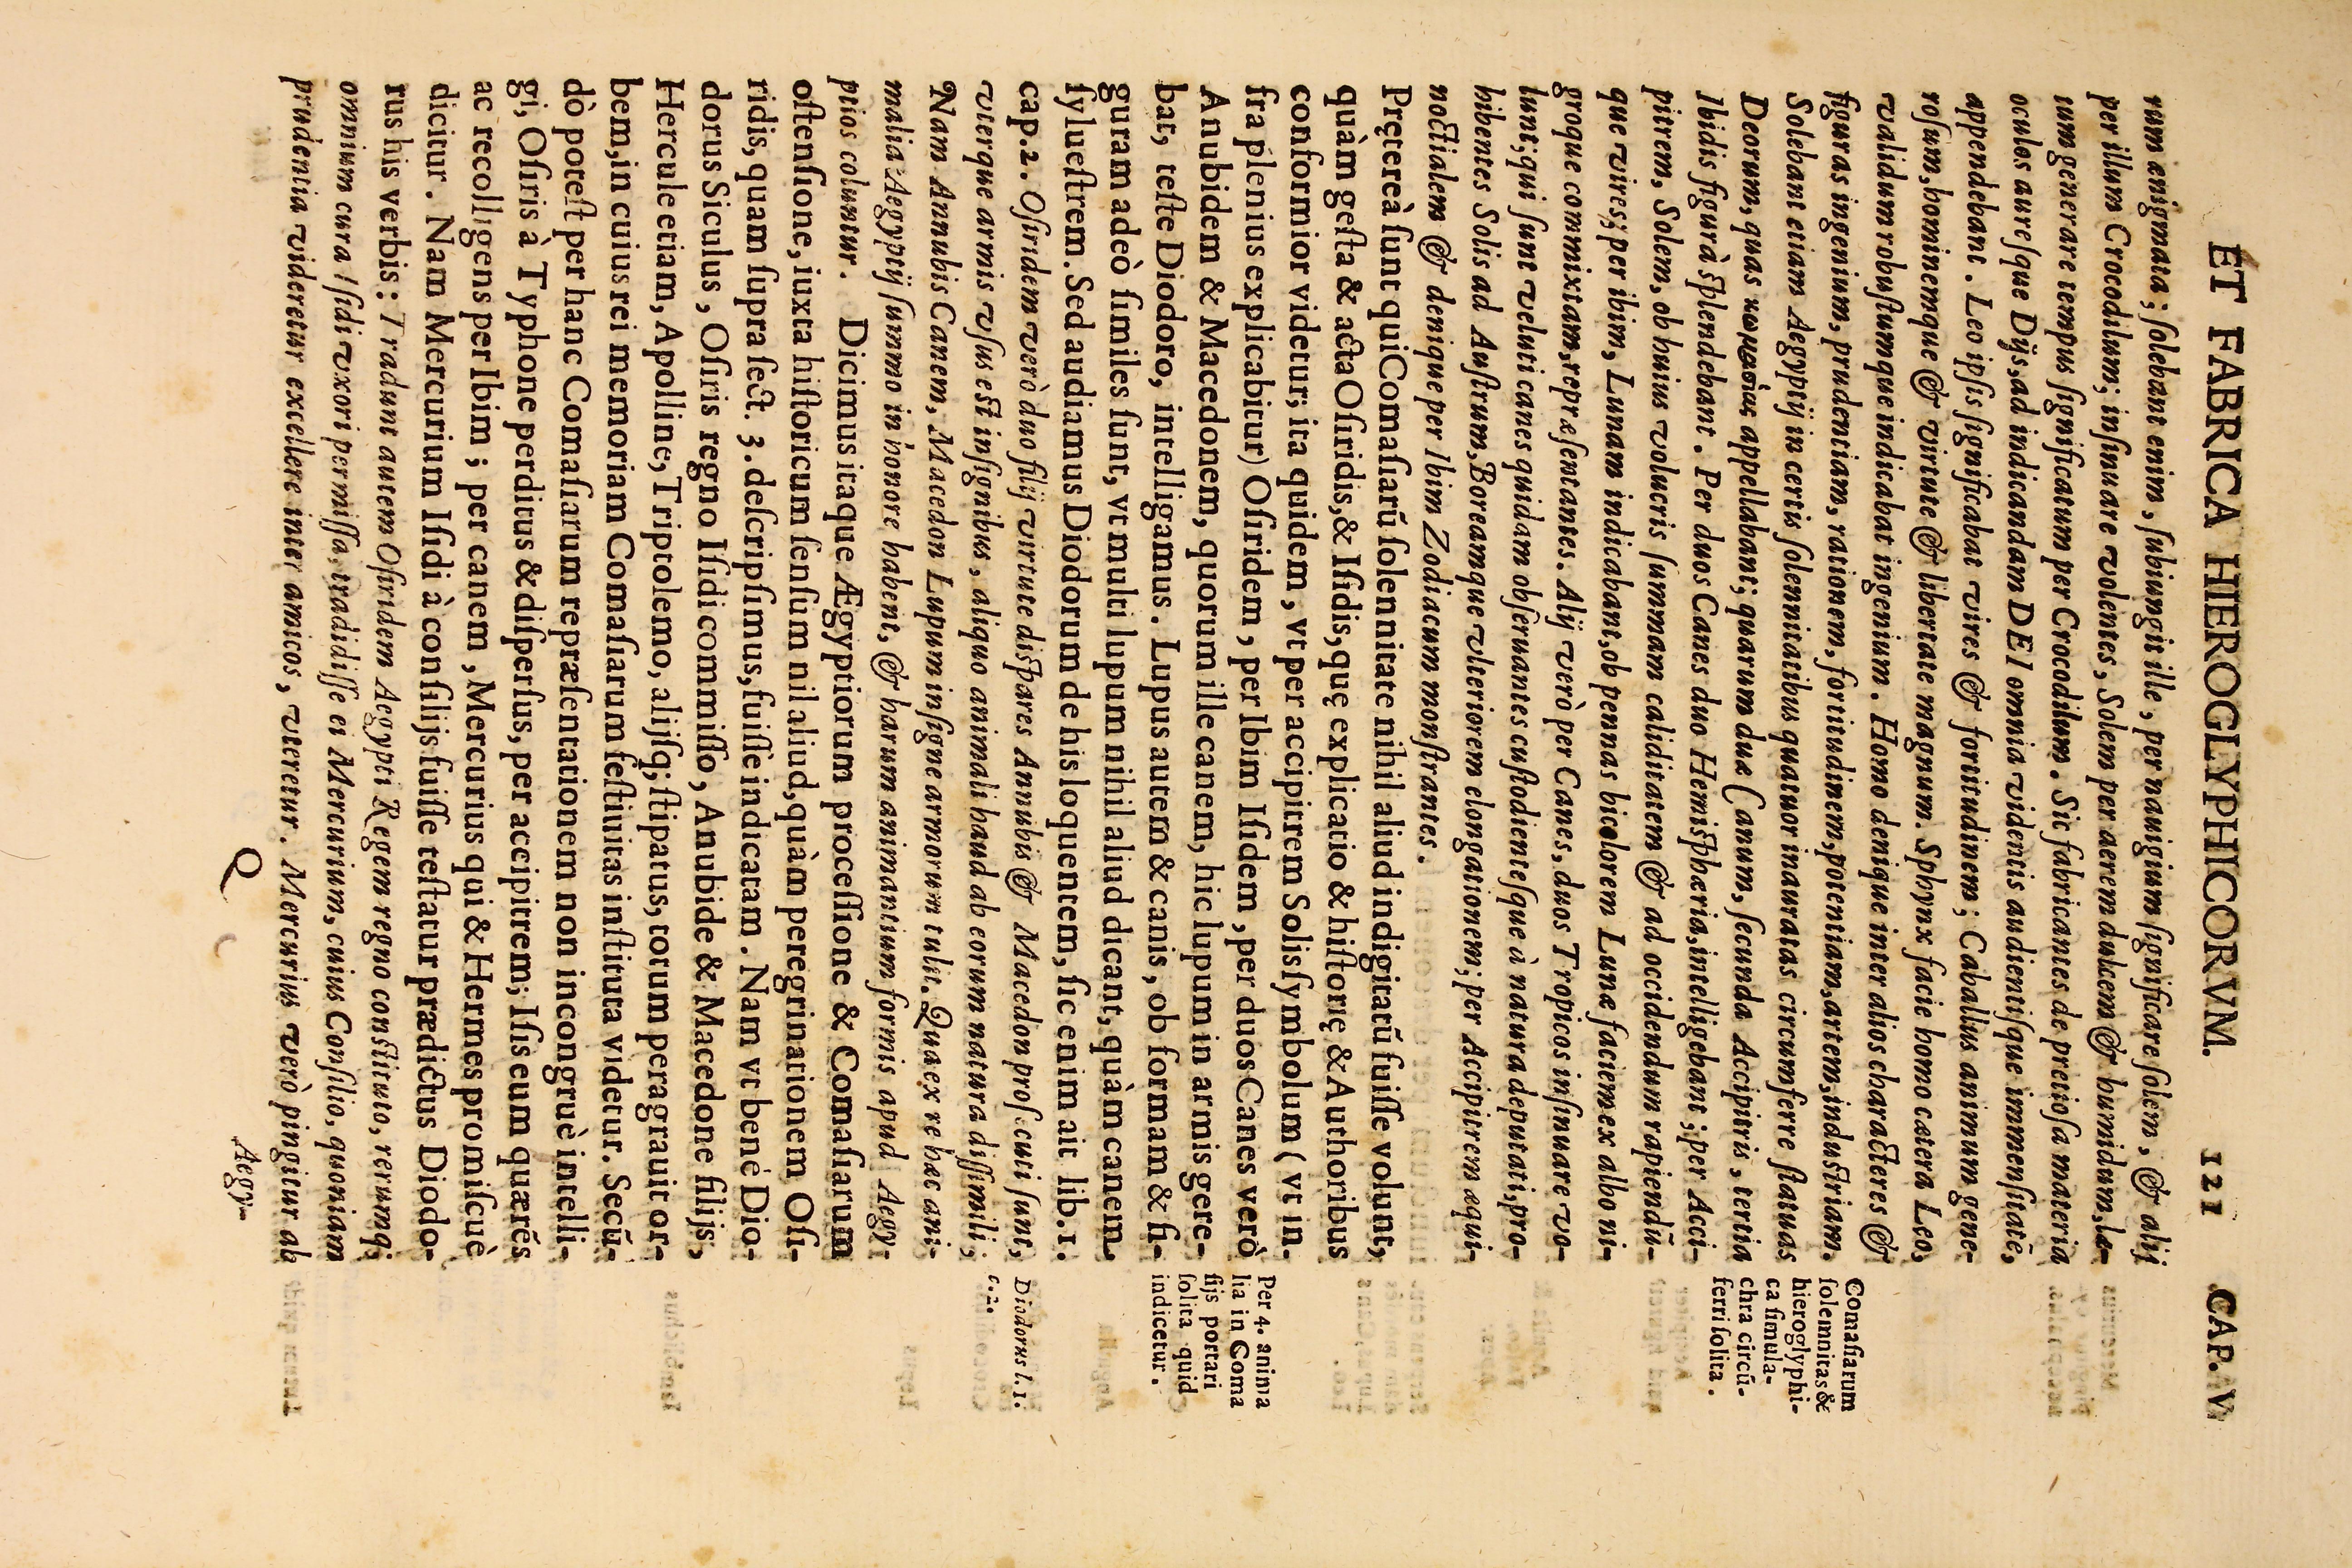 ET FABRICA HIEROGLYPHICORVM. 121 CAP. V
rum ænigmata; ſolebant enim, ſubiungit ille, per nauigium ſignificare ſolem, & alij
per illum Crocodilum; inſinuare volentes, Solem per aerem dulcem & humidum, la-
tum generare tempus ſignificatum per Crocodilum. Sic fabricantes de pretioſa materia
oculos aureſque Dijs, ad indicandam DEI omnia videntis audientiſque immenſitatē,
appendebant. Leo ipſis ſignificabat vires & fortitudinem; Caballus animum gene-
roſum, hominemque & virtute & libertate magnum. Sphynx facie homo cætera Leo,
validum robuſtumque indicabat ingenium. Homo denique inter alios characteres &
figuras ingenium, prudentiam, rationem, fortitudinem, potentiam, artem, induſtriam.
Solebant etiam Aegyptij in certis ſolennitatibus quatuor inauratas circumferre ſtatuas
Deorum, quas κωμασίας appellabant; quarum duæ Canum, ſecunda Accipitris, tertia
Ibidis figurà ſplendebant. Per duos Canes duo Hemiſphæria, intelligebant; per Acci-
pitrem, Solem, ob huius volucris ſummam caliditatem & ad occidendum rapiendū-
que vires; per ibim, Lunam indicabant, ob pennas bicolorem Lunæ faciem ex albo ni-
groque commixtam, repræſentantes. Alij verò per Canes, duos Tropicos inſinuare vo-
lunt; qui ſunt veluti canes quidam obſeruantes cuſtodienteſque à natura deputati, pro-
hibentes Solis ad Auſtrum, Boreamque vlteriorem elongationem; per Accipitrem æqui-
noctialem & denique per Ibim Zodiacum monſtrantes.
Prętereà ſunt qui Comaſiarū ſolennitate nihil aliud indigitarū fuiſſe volunt,
quàm geſta & acta Oſiridis, & Iſidis, quę explicatio & hiſtorię & Authoribus
conformior videtur; ita quidem, vt per accipitrem Solis ſymbolum ( vt in-
fra plenius explicabitur) Oſiridem, per Ibim Iſidem, per duos Canes verò
Anubidem & Macedonem, quorum ille canem, hic lupum in armis gere-
bat, teſte Diodoro, intelligamus. Lupus autem & canis, ob formam & fi-
guram adeò ſimiles ſunt, vt multi lupum nihil aliud dicant, quàm canem
ſylueſtrem. Sed audiamus Diodorum de his loquentem, ſic enim ait lib. 1.
cap. 2. Oſiridem verò duo filij virtute diſpares Annubis & Macedon proſecuti ſunt,
vterque armis vſus eſt inſignibus, aliquo animali haud ab eorum natura diſſimili;
Nam Annubis Canem, Macedon Lupum inſigne armorum tulit. Qua ex re hæc ani-
malia Aegyptij ſummo in honore habent, & harum animantium formis apud Aegy-
ptios coluntur. Dicimus itaque Ægyptiorum proceſſione & Comaſiarum
oſtenſione, iuxta hiſtoricum ſenſum nil aliud, quàm peregrinationem Oſi-
ridis, quam ſupra ſect. 3. deſcripſimus, fuiſſe indicatam. Nam vt benè Dio-
dorus Siculus, Oſiris regno Iſidi commiſſo, Anubide & Macedone filijs,
Hercule etiam, Apolline, Triptolemo, alijſq; ſtipatus, totum peragrauit or-
bem, in cuius rei memoriam Comaſiarum feſtiuitas inſtituta videtur. Secū-
dò poteſt per hanc Comaſiarum repræſentationem non incongruè intelli-
gi, Oſiris à Typhone perditus & diſperſus, per accipitrem; Iſis eum quærēs
ac recolligens per Ibim; per canem, Mercurius qui & Hermes promiſcuè
dicitur. Nam Mercurium Iſidi à conſilijs fuiſſe teſtatur prædictus Diodo-
rus his verbis: Tradunt autem Oſiridem Aegypti Regem regno conſtituto, rerumq;
omnium cura Iſidi vxori permiſſa, tradidiſſe ei Mercurium, cuius Conſilio, quoniam
prudentia videretur excellere inter amicos, vteretur. Mercurius verò pingitur ab
Q Aegy-
Comaſiarum
ſolemnitas &
hieroglyphi-
ca ſimula-
chra circū-
ferri ſolita.
Per 4. anima
lia in Coma
ſijs portari
ſolita quid
indicetur.
Diodorus l. 1.
c. 2.